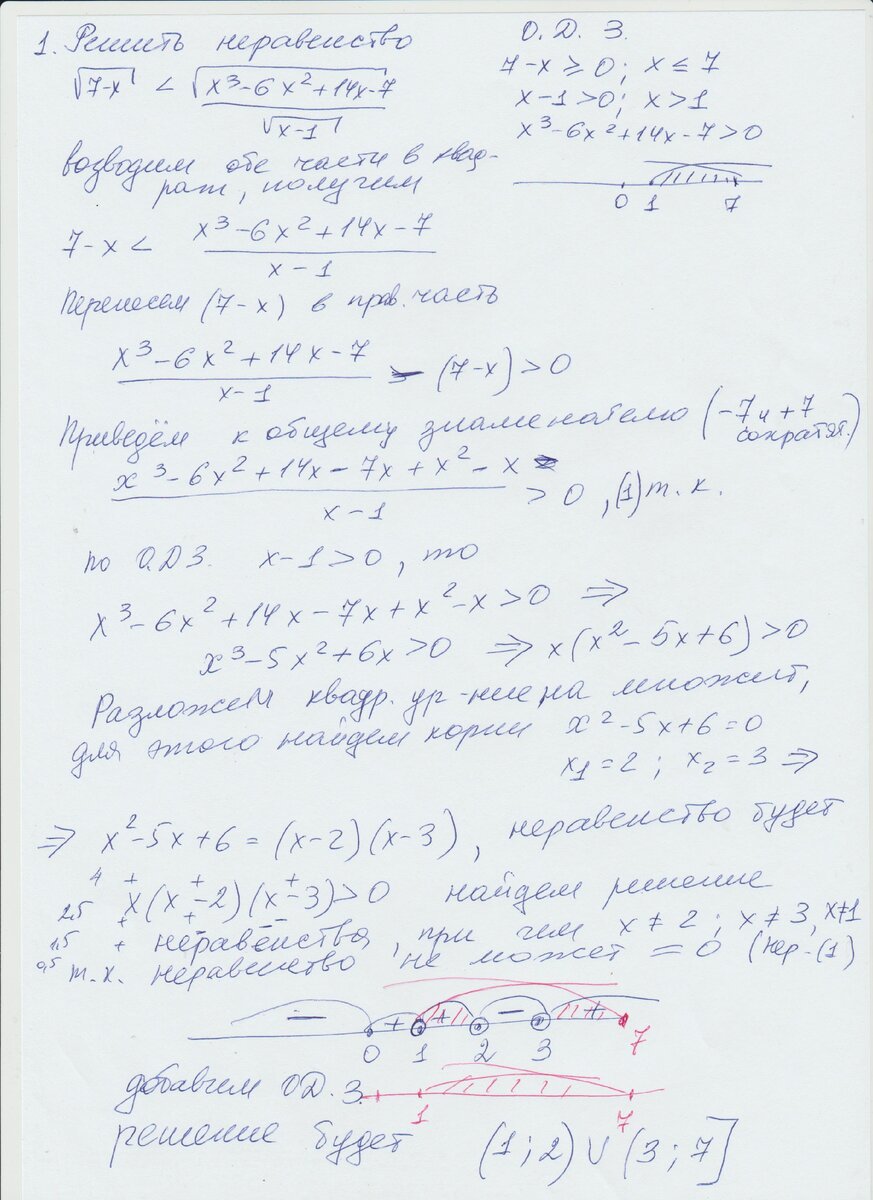 1. Решить неравенство
√7-x < √x³-6x²+14x-7
√x-1
О. Д. З.
7-x ≥ 0; x ≤ 7
x-1 >0; x >1
x³-6x²+14x-7 >0
0 1 7
возводим обе части в квад-
рат, получим
7-x < x³-6x²+14x-7
x-1
Перенесем (7-x) в прав. часть
x³-6x²+14x-7
x-1
- (7-x) > 0
Приведём к общему знаменателю (-7 и +7
сократят.)
x³-6x²+14x-7x+x²-x
x-1
> 0, (1) т. к.
по О.Д.З. x-1>0, то
x³-6x²+14x-7x+x²-x>0 ⇒
x³-5x²+6x>0 ⇒ x(x²-5x+6)>0
Разложем квадр. ур-ние на множит,
для этого найдем корни x²-5x+6=0
x1=2; x2=3 ⇒
⇒ x²-5x+6 = (x-2)(x-3), неравенство будет
4 + + +
x(x-2)(x-3)>0 найдем решение
2,5 + + -
1,5 + - -
неравенства, при чем x≠2; x≠3, x≠1
0,5 т.к. неравенство не может = 0 (нер-(1)
- + + - +
0 1 2 3 7
добавим ОД.З.
1 7
решение будет (1;2)∪(3;7]